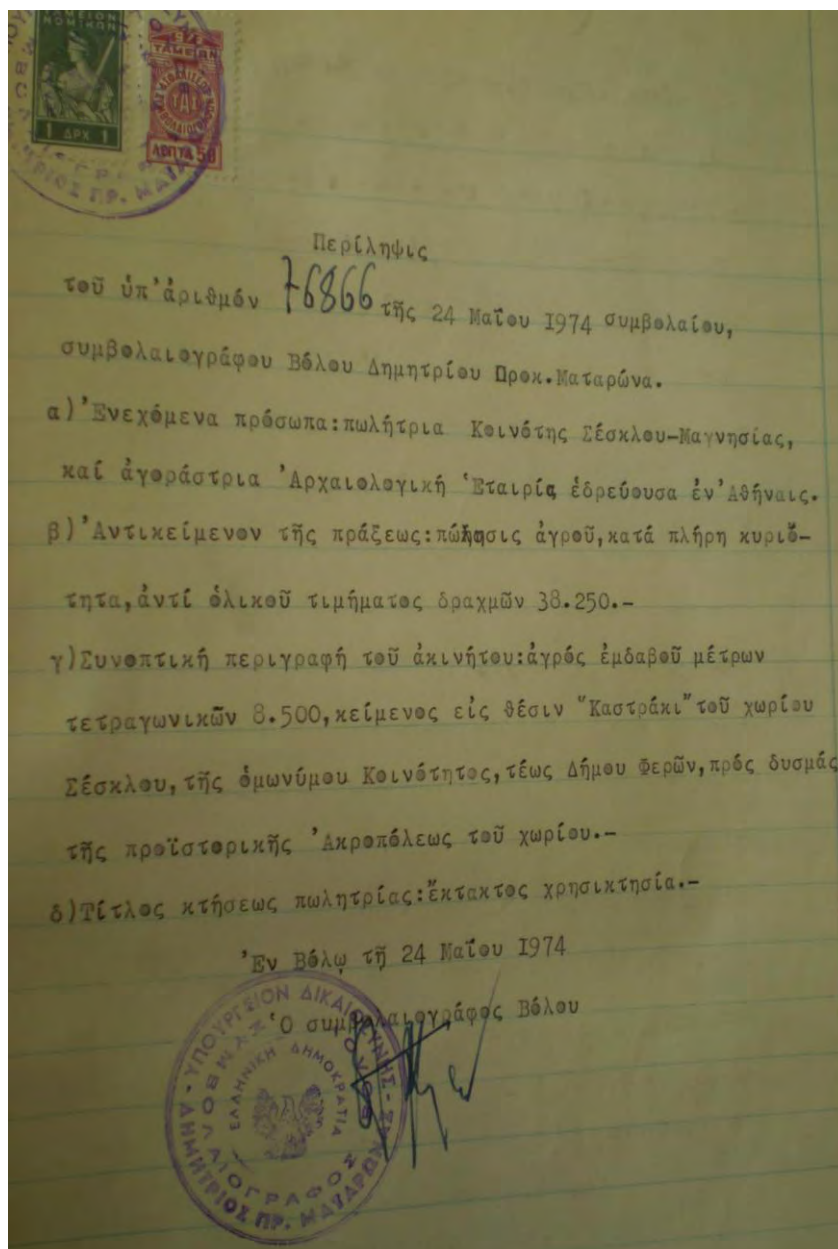 ΤΑΜΕΙΟΝ
ΝΟΜΙΚΩΝ
1 ΔΡΧ 1
ΤΑΜΕΙΩΝ
ΤΑΣ
ΛΕΠΤΑ 50
Περίληψις
τοῦ ὑπ'ἀριθμόν 76866 τῆς 24 Μαΐου 1974 συμβολαίου,
συμβολαιογράφου Βόλου Δημητρίου Προκ.Ματαρώνα.
α)'Ενεχόμενα πρόσωπα:πωλήτρια Κοινότης Σέσκλου-Μαγνησίας,
καί ἀγοράστρια 'Αρχαιολογική 'Εταιρία ἑδρεύουσα ἐν'Αθήναις.
β)'Αντικείμενον τῆς πράξεως:πώλησις ἀγροῦ,κατά πλήρη κυριό-
τητα,ἀντί ὁλικοῦ τιμήματος δραχμῶν 38.250.-
γ)Συνοπτική περιγραφή τοῦ ἀκινήτου:ἀγρός ἐμδαβοῦ μέτρων
τετραγωνικῶν 8.500,κείμενος εἰς θέσιν "Καστράκι"τοῦ χωρίου
Σέσκλου,τῆς ὁμωνύμου Κοινότητος,τέως Δήμου Φερῶν,πρός δυσμάς
τῆς προϊστορικῆς 'Ακροπόλεως τοῦ χωρίου.-
δ)Τίτλος κτήσεως πωλητρίας:ἔκτακτος χρησικτησία.-
'Εν Βόλῳ τῇ 24 Μαΐου 1974
'Ο συμβολαιογράφος Βόλου
ΥΠΟΥΡΓΕΙΟΝ ΔΙΚΑΙΟΣΥΝΗΣ
ΕΛΛΗΝΙΚΗ ΔΗΜΟΚΡΑΤΙΑ
ΔΗΜΗΤΡΙΟΣ ΠΡ.